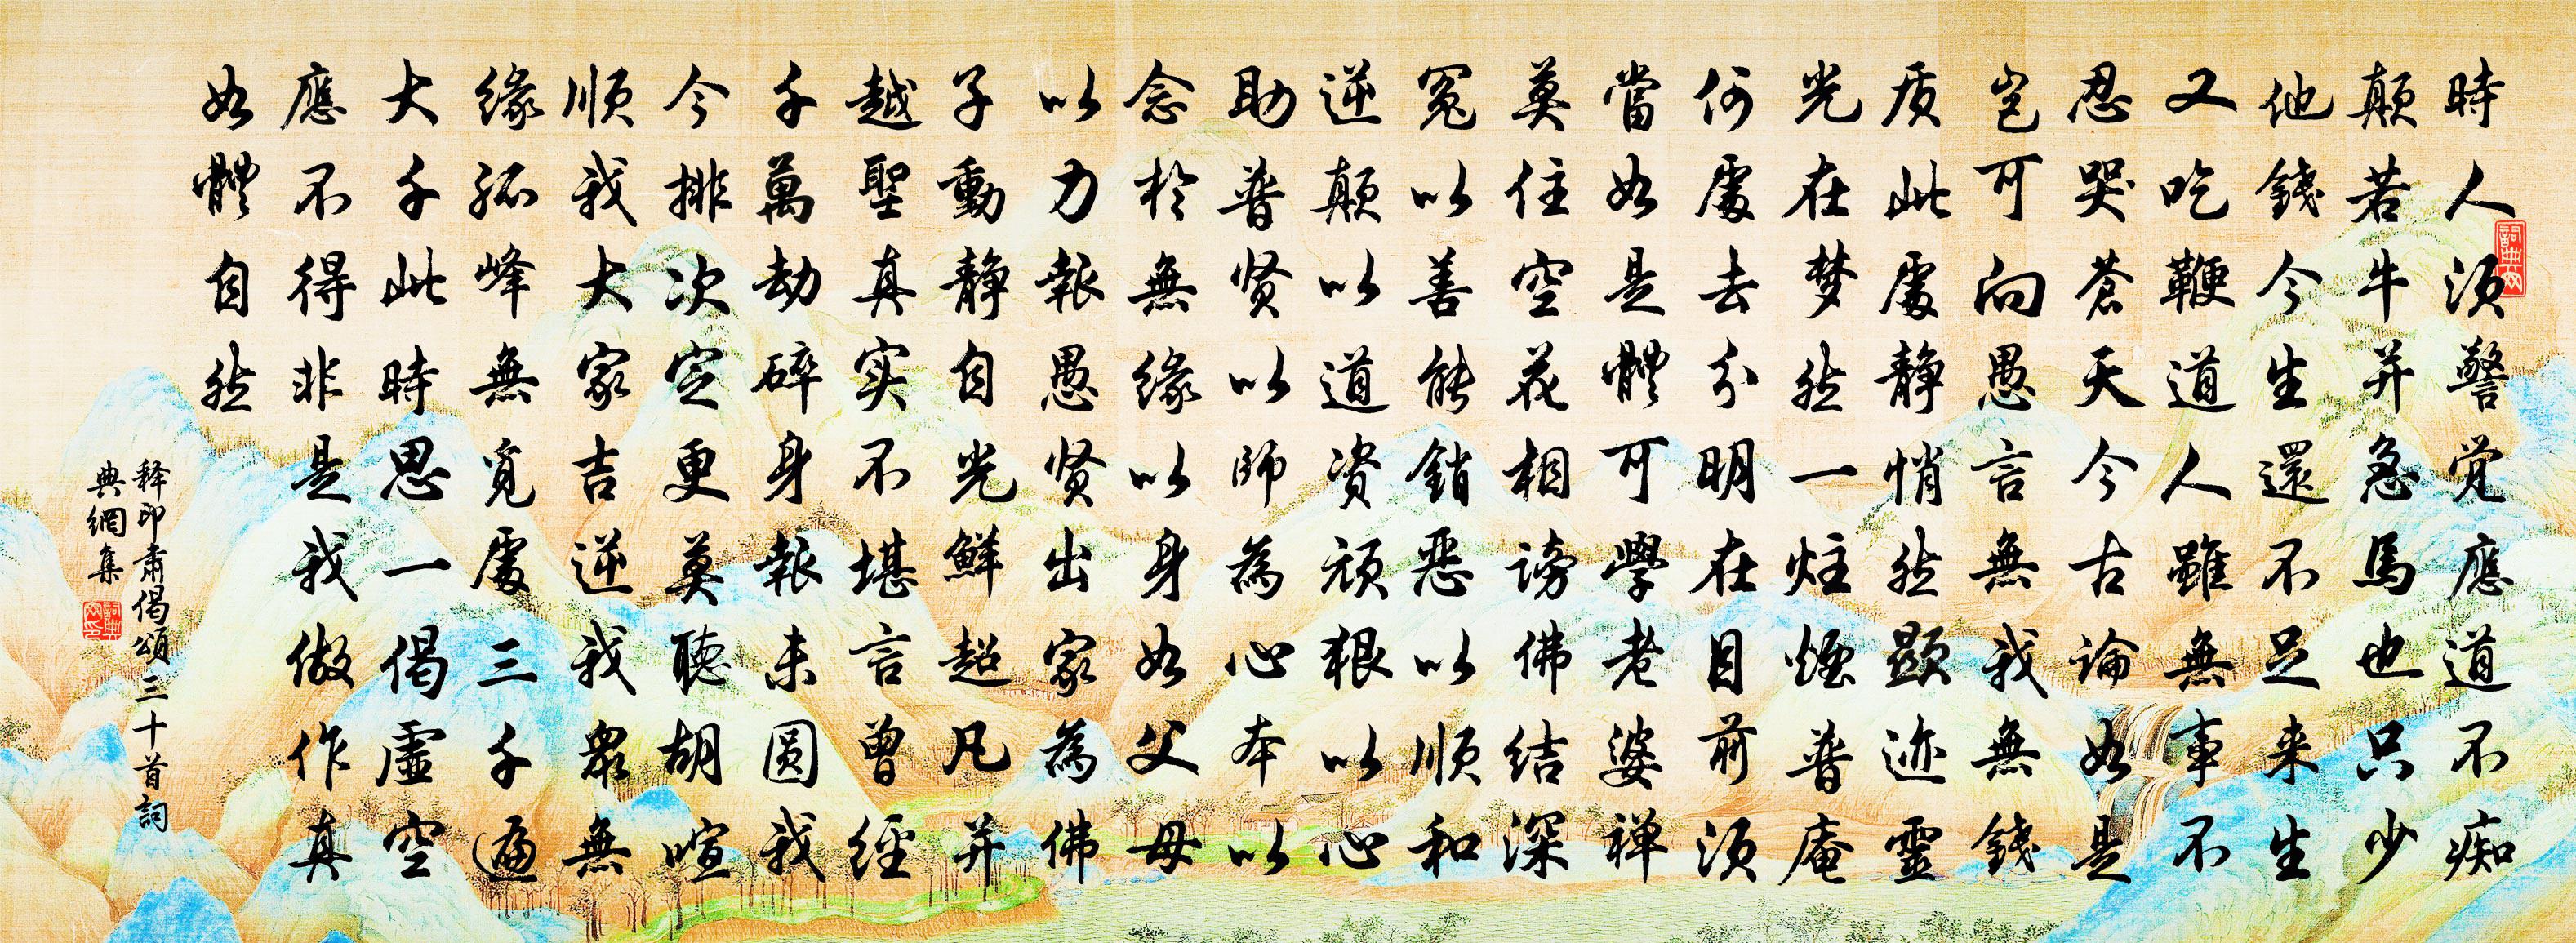 時人須警覚應道不痴
顛若牛并急馬也只少
他錢今生還不足来生
又吃鞭道人雖無事不
忍哭蒼天今古論如是
岂可向愚言無我無錢
质此處静悄然顕迹靈
光在梦然一炷煙普庵
何處去分明在目前須
當如是體可學老婆禅
莫住空花相謗佛結深
冤以善能銷恶以順和
逆顛以道资頑根以心
助普贤以師為心本以
念於無缘以身如父母
以力報愚贤出家為佛
子動静自光鮮超凡并
越聖真实不堪言曾經
千萬劫碎身報未圆我
今排次定更莫聽胡喧
順我大家吉逆我衆無
缘孤峰無覓處三千遍
大千此時思一偈虚空
應不得非是我做作真
如體自然
释印肃偈頌三十首詞
典網集
詞典网
詞典网印